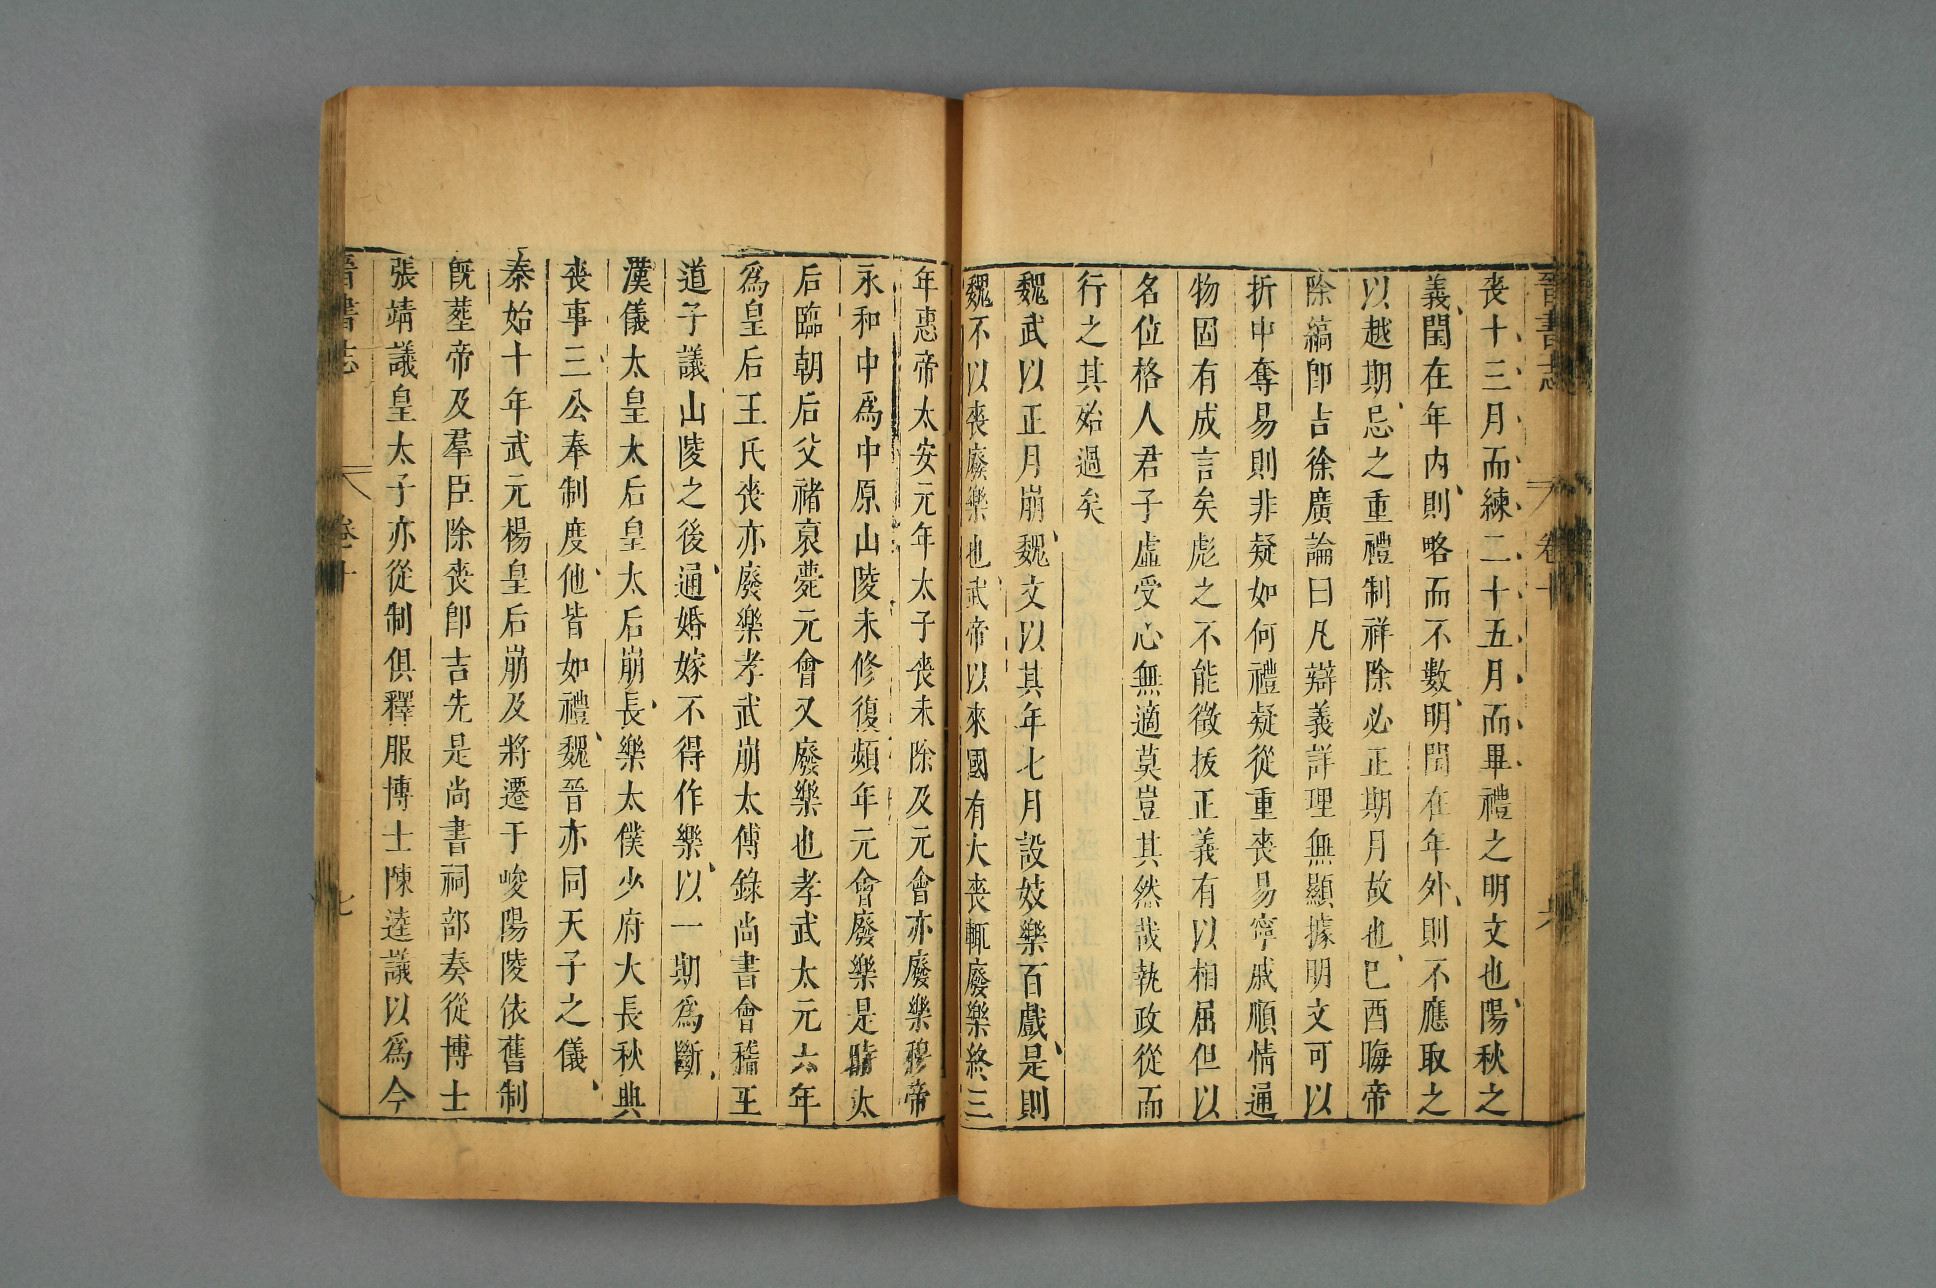 晉書志 卷十
喪十三月而練二十五月而畢禮之明文也陽秋之
義閏在年內則略而不數明閏在年外則不應取之
以越期忌之重禮制祥除必正期月故也巳酉晦帝
除縞卽吉徐廣論曰凡辯義詳理無顯據明文可以
折中奪易則非疑如何禮疑從重喪易寧戚順情通
物固有成言矣彪之不能徵拔正義有以相屈但以
名位格人君子虛受心無適莫豈其然哉執政從而
行之其殆過矣
魏武以正月崩魏文以其年七月設妓樂百戲是則
魏不以喪廢樂也武帝以來國有大喪輒廢樂終三
年惠帝太安元年太子喪未除及元會亦廢樂穆帝
永和中爲中原山陵未修復頻年元會廢樂是時太
后臨朝后父褚裒薨元會又廢樂也孝武太元六年
爲皇后王氏喪亦廢樂孝武崩太傅錄尚書會稽王
道子議山陵之後通婚嫁不得作樂以一期爲斷
漢儀太皇太后皇太后崩長樂太僕少府大長秋典
喪事三公奉制度他皆如禮魏晉亦同天子之儀
泰始十年武元楊皇后崩及將遷于峻陽陵依舊制
旣葬帝及羣臣除喪卽吉先是尚書祠部奏從博士
張靖議皇太子亦從制俱釋服博士陳逵議以爲今
晉書志 卷十 七